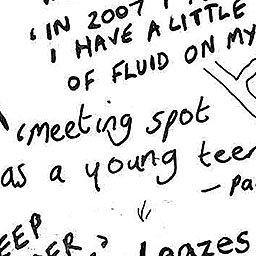 'IN 2007 I
I HAVE A LITTLE
OF FLUID ON MY
'meeting spot
as a young teen
- Pa
EEP
DER,
Leazes